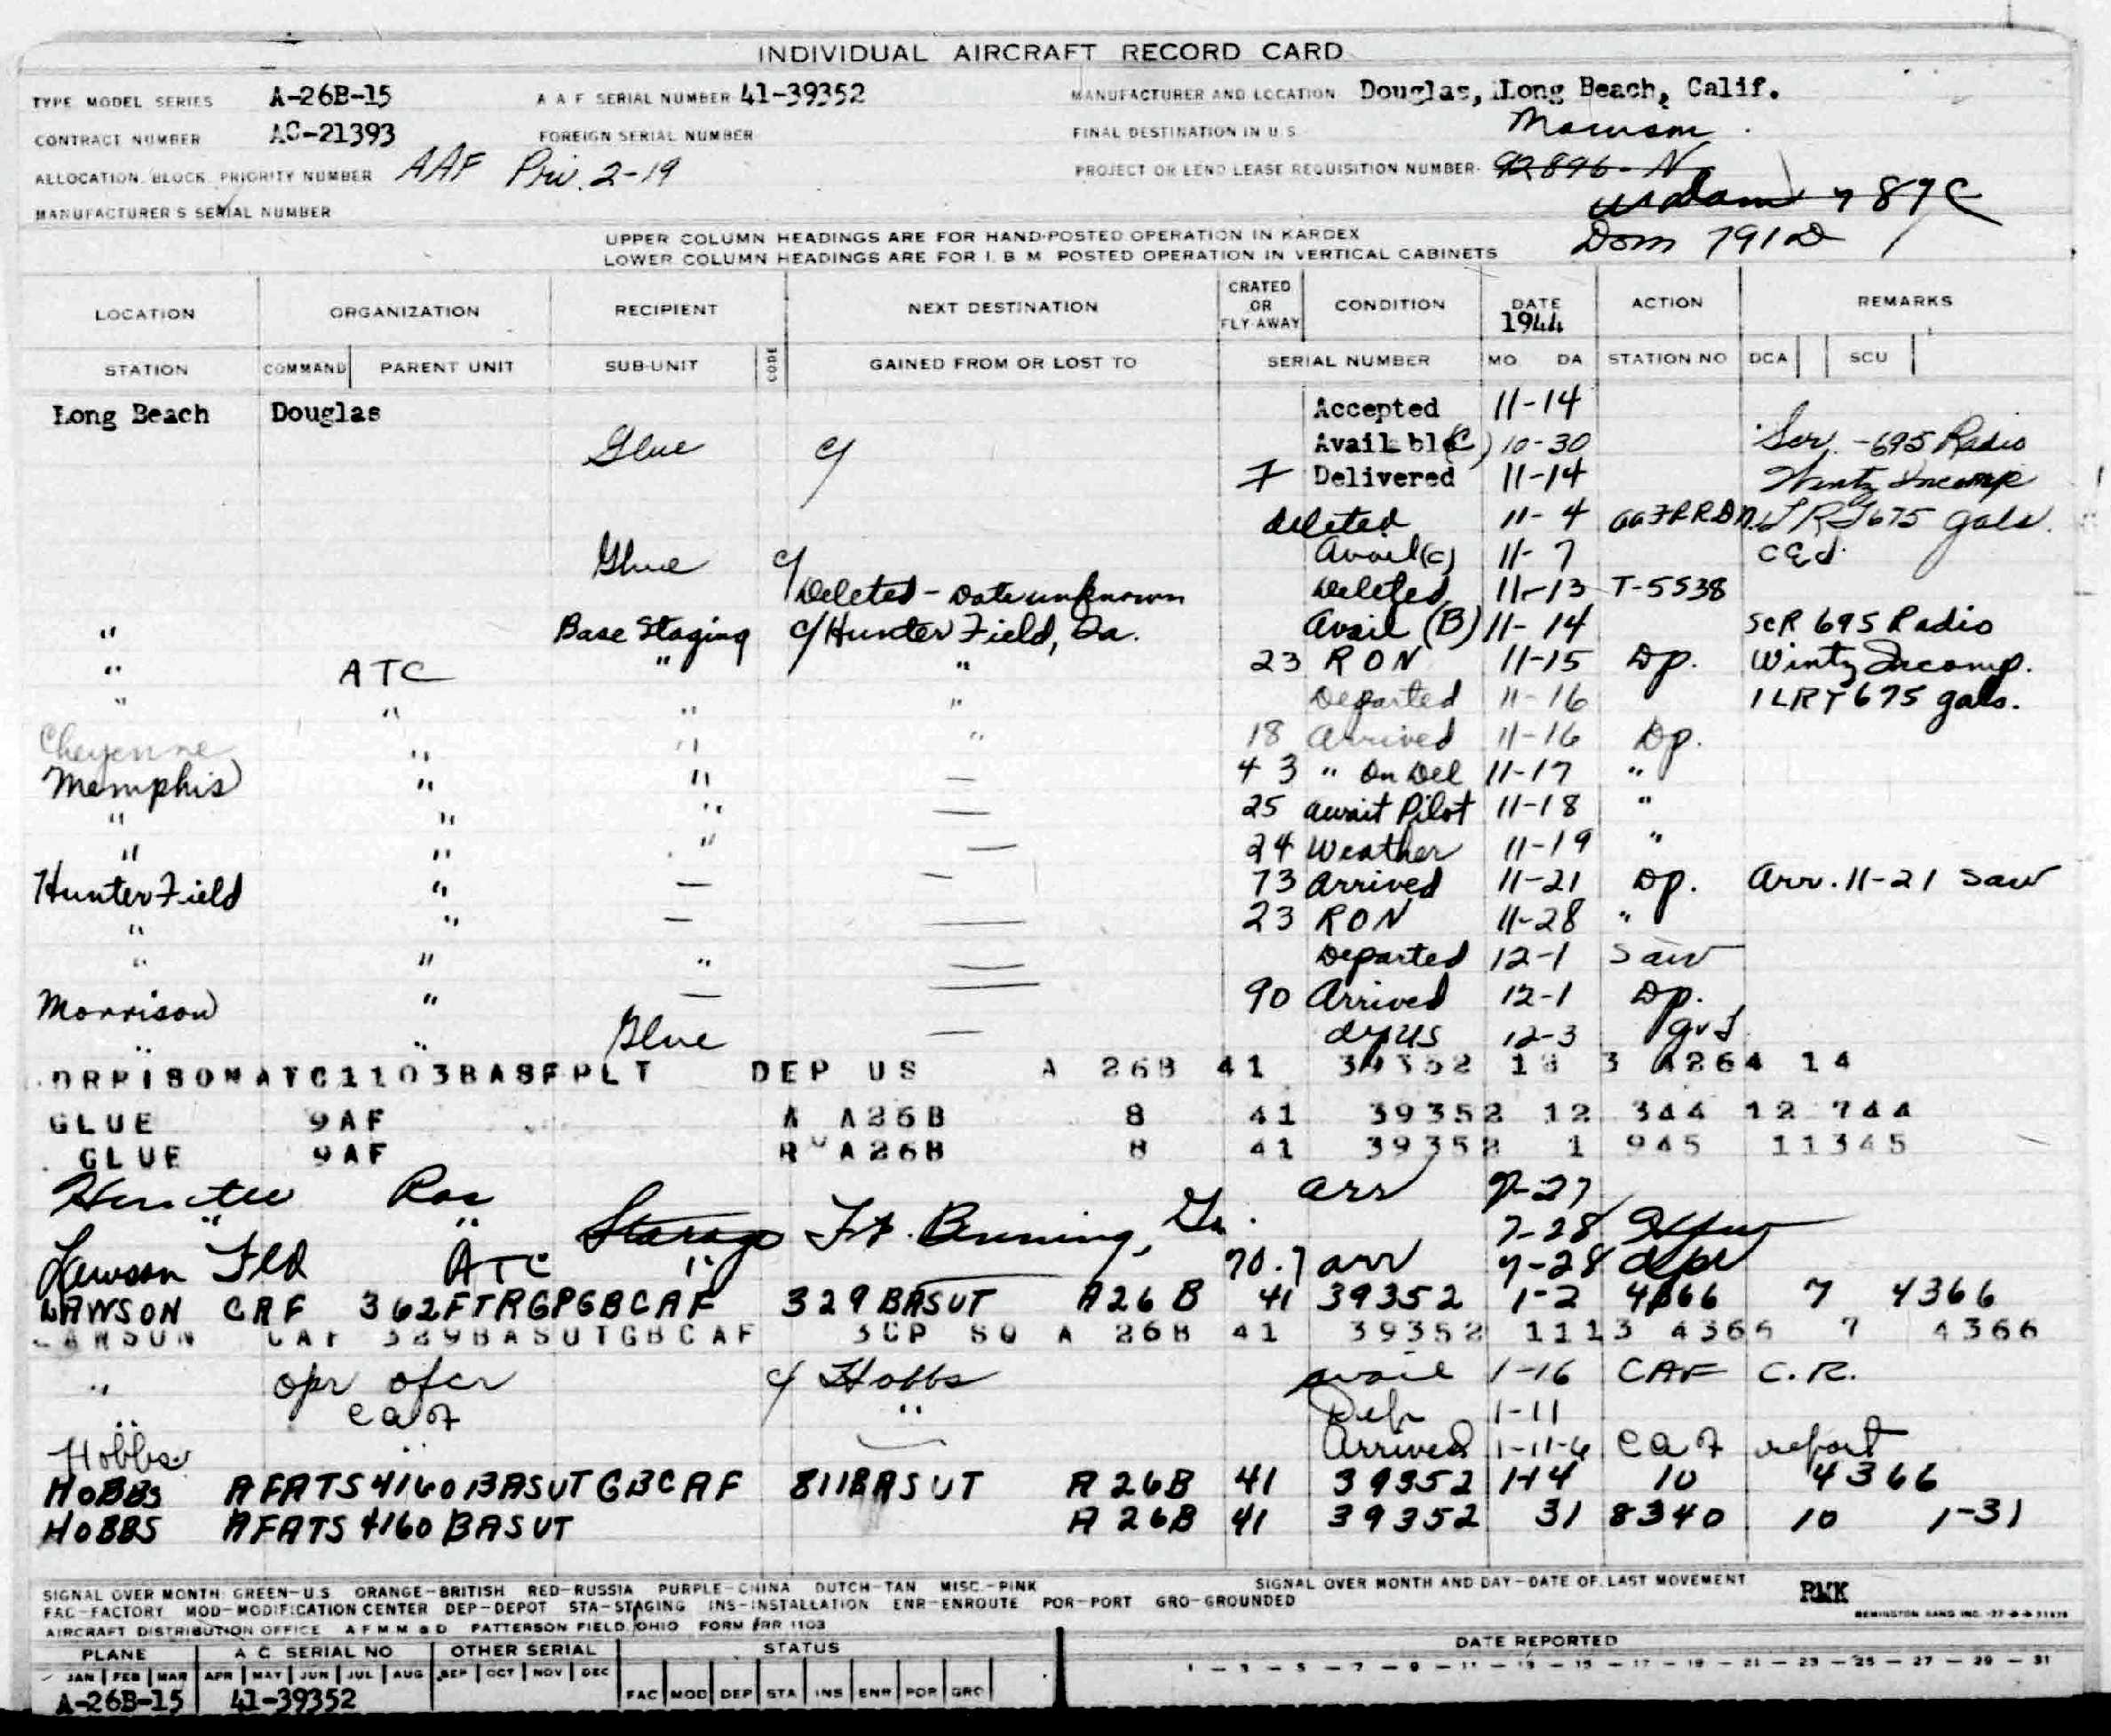 INDIVIDUAL AIRCRAFT RECORD CARD
TYPE MODEL SERIES A-26B-15 A A F SERIAL NUMBER 41-39352 MANUFACTURER AND LOCATION Douglas, Long Beach, Calif.
CONTRACT NUMBER AC-21393 FOREIGN SERIAL NUMBER FINAL DESTINATION IN U.S.
ALLOCATION BLOCK PRIORITY NUMBER AAF Pri. 2-19 PROJECT OR LEND LEASE REQUISITION NUMBER 92896-N
MANUFACTURER'S SERIAL NUMBER
Dom 791D
UPPER COLUMN HEADINGS ARE FOR HAND-POSTED OPERATION IN KARDEX
LOWER COLUMN HEADINGS ARE FOR I.B.M. POSTED OPERATION IN VERTICAL CABINETS
LOCATION ORGANIZATION RECIPIENT NEXT DESTINATION CRATED OR FLY-AWAY CONDITION DATE 1944 ACTION REMARKS
STATION COMMAND PARENT UNIT SUB-UNIT CODE GAINED FROM OR LOST TO SERIAL NUMBER MO. DA STATION NO DCA SCU
Long Beach Douglas Accepted 11-14
Glue c/ Available (C) 10-30 -695 Radio
7 Delivered 11-14
deleted 11-4 675 gals.
Glue c/ Avail(c) 11-7
Deleted - Date unknown Deleted 11-13 T-5538
" Base Staging c/ Hunter Field, Ga. Avail (B) 11-14 SCR 695 Radio
" ATC " " 23 RON 11-15 Dp. Wintz Incomp.
" " " " Departed 11-16 1 LRT 675 gals.
Cheyenne " " " 18 Arrived 11-16 Dp.
Memphis " " — 43 " On Del 11-17 "
" " " — 25 await Pilot 11-18 "
" " " — 24 Weather 11-19 "
Hunter Field " — — 73 Arrived 11-21 Dp. Arr. 11-21 Saw
" " — — 23 RON 11-28 "
" " " — Departed 12-1 Saw
Morrison " — — 90 Arrived 12-1 Dp.
" " Glue — dep US 12-3
ORRISON ATC1103BASFPLT DEP US A 26B 41 39352 1264 14
GLUE 9AF A A26B 8 41 39352 12 344 12 744
GLUE 9AF R A26B 8 41 39352 1 945 11345
Hunter arr 7-27
" " Storage Ft. Benning, Ga. 7-28
Lawson Fld ATC " 70.7 arr 7-28 depr
LAWSON CAF 362FTRGPGBCAF 329BASUT A26B 41 39352 1-2 4366 7 4366
LAWSON CAF 329BASUTGBCAF 3CP SQ A 26B 41 39352 1113 4366 7 4366
" opr ofcr c/ Hobbs avail 1-16 CAF C.R.
" caf " Dep 1-11
Hobbs " Arrived 1-11-6 caf report
HOBBS AFATS 4160BASUTGBCAF 811BASUT A26B 41 39352 1-14 10 4366
HOBBS AFATS 4160BASUT A26B 41 39352 31 8340 10 1-31
SIGNAL OVER MONTH: GREEN—U.S ORANGE—BRITISH RED—RUSSIA PURPLE—CHINA DUTCH—TAN MISC.—PINK SIGNAL OVER MONTH AND DAY—DATE OF LAST MOVEMENT RMK
FAC—FACTORY MOD—MODIFICATION CENTER DEP—DEPOT STA—STAGING INS—INSTALLATION ENR—ENROUTE POR—PORT GRO—GROUNDED
AIRCRAFT DISTRIBUTION OFFICE A F M M & D PATTERSON FIELD, OHIO FORM PRR 1103
PLANE A C SERIAL NO OTHER SERIAL STATUS DATE REPORTED
JAN FEB MAR APR MAY JUN JUL AUG SEP OCT NOV DEC 1 — 3 — 5 — 7 — 9 — 11 — 13 — 15 — 17 — 19 — 21 — 23 — 25 — 27 — 29 — 31
A-26B-15 41-39352 FAC MOD DEP STA INS ENR POR GRO